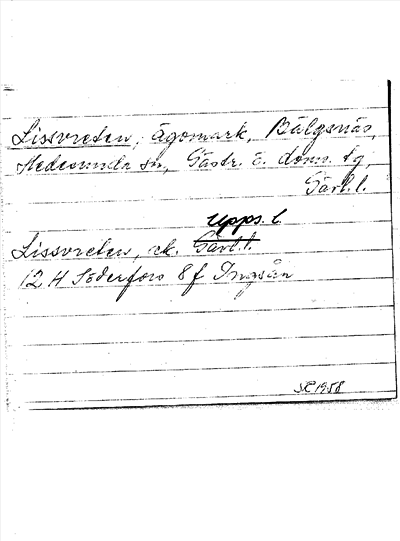 Lissvreten, ägomark, Bälgsnäs,
Hedesunda sn, Gästr. ö. doms. tg,
Gävl. l.
Upps. l.
Lissvreten, ek. Gävl. l.
12 H Söderfors 8 f
1958